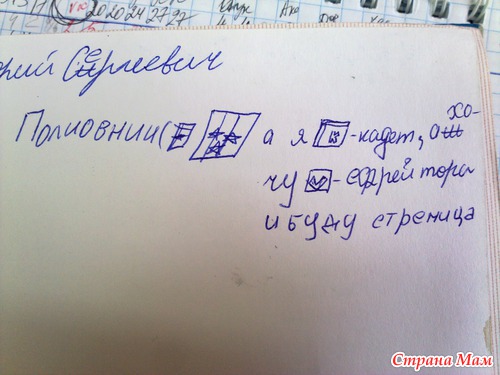 20.20.24.27.27
рий Сергиевич
Полковнии( а я К -кадет, а хо-
чу -ефрейтора
и буду стреница
Страна Мам